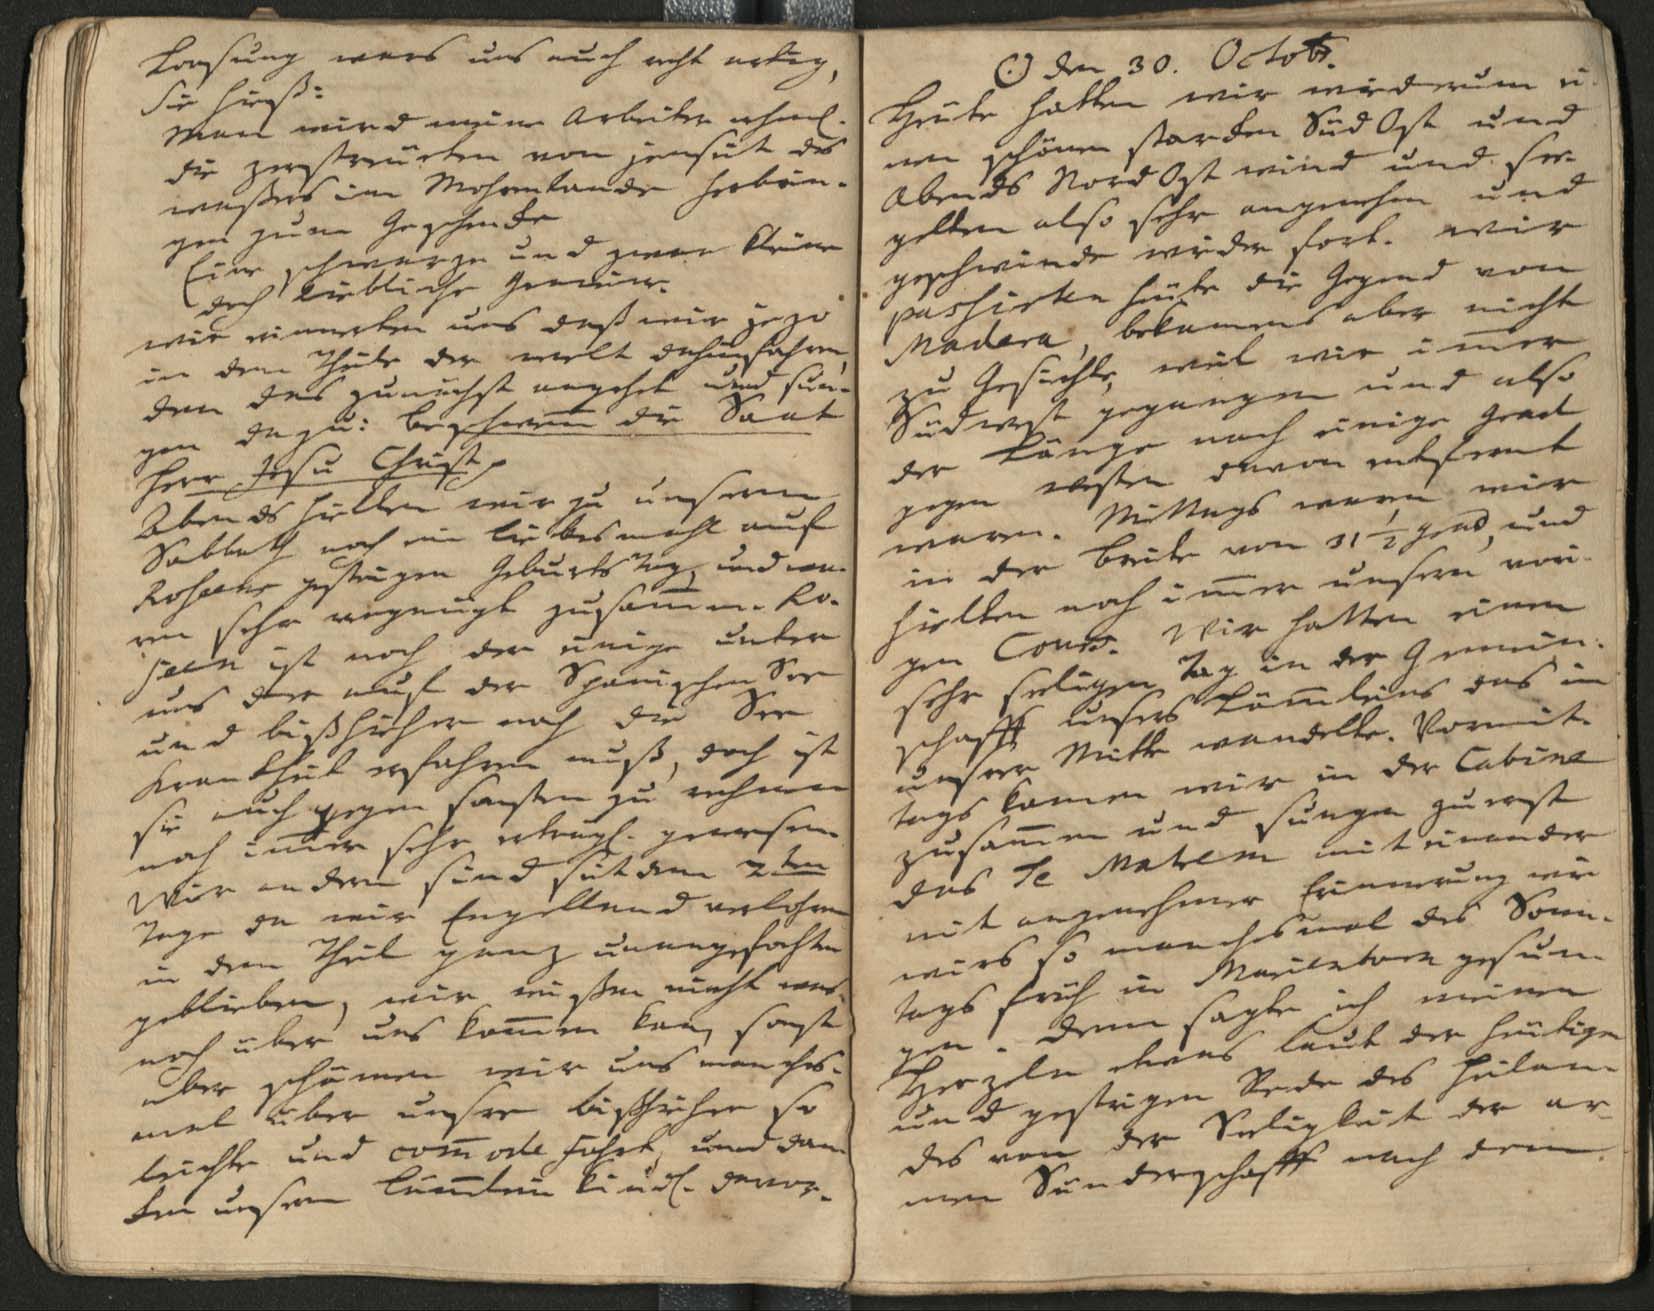 Losung wars uns auch recht artig,
Sie hieß:
Man wird meine Arbeiter nehml.
die zerstreüeten von jenseit des
waßers im Mohrenlande herbrin-
gen zum Geschencke
Eine schwarze und zwar kleine
doch liebliche Gemeine.
wir erinnerten uns daß wir jezo
in dem Theile der welt dahinfahren,
den das zunächst angehet und sun-
gen dazu: Beschwem̄ die Saat
Herr Jesu Christ
Abends hielten wir zu unserm
Sabbath noch ein liebesmahl auf
Roseens gestrigen Geburts Tag, und wa-
ren sehr vergnügt zusam̄en. Ro-
seen ist noch der einige unter
uns der auf der Spanischen See
und bißhieher noch die See
Kranckheit erfahren muß, doch ist
sie auch gegen sonsten zu rechnen
noch im̄er sehr erträgl. gewesen.
Wir andern sind seit dem 2ten
Tage da wir Engelland verlohren
in dem Theil ganz unangefochten
geblieben, wir wißen nicht was
noch über uns kom̄en kan, sonst
aber schämen wir uns manches-
mal über unsre bißherige so
leichte und com̄ode Fahrt, und dan-
cken unserm Läm̄lein kindl. davor.
☉ den 30. Octobr.
Heute hatten wir wiederum ei-
nen schönen starcken Süd Ost und
Abends Nord Ost wind und see-
gelten also sehr angenehm und
geschwinde wieder fort. wir
passirten heute die Gegend von
Madera, bekamens aber nicht
zu Gesichte, weil wir im̄er
Südwest gegangen und also
der Länge nach einige Grad
gegen Westen davon entfernt
waren. Mittags waren wir
in der Breite von 31 1/2 grad, und
hielten noch im̄er unsern vori-
gen Cours. Wir hatten einen
sehr seeligen Tag in der Gemein-
schafft unsers Läm̄leins das in
unsrer Mitte wandelte. Vormit-
tags kamen wir in der Cabine
zusam̄en und sungen zuerst
das Te Matrem mit einander
mit angenehmer Erinnerung wie
wirs so manchesmal des Sonn-
tags früh in Marienborn gesun-
gen. Denn sagte ich meinen
Herzeln etwas laut der heütigen
und gestrigen Rede des Heilan-
des von der Seeligkeit der ar-
men Sünderschafft nach dem